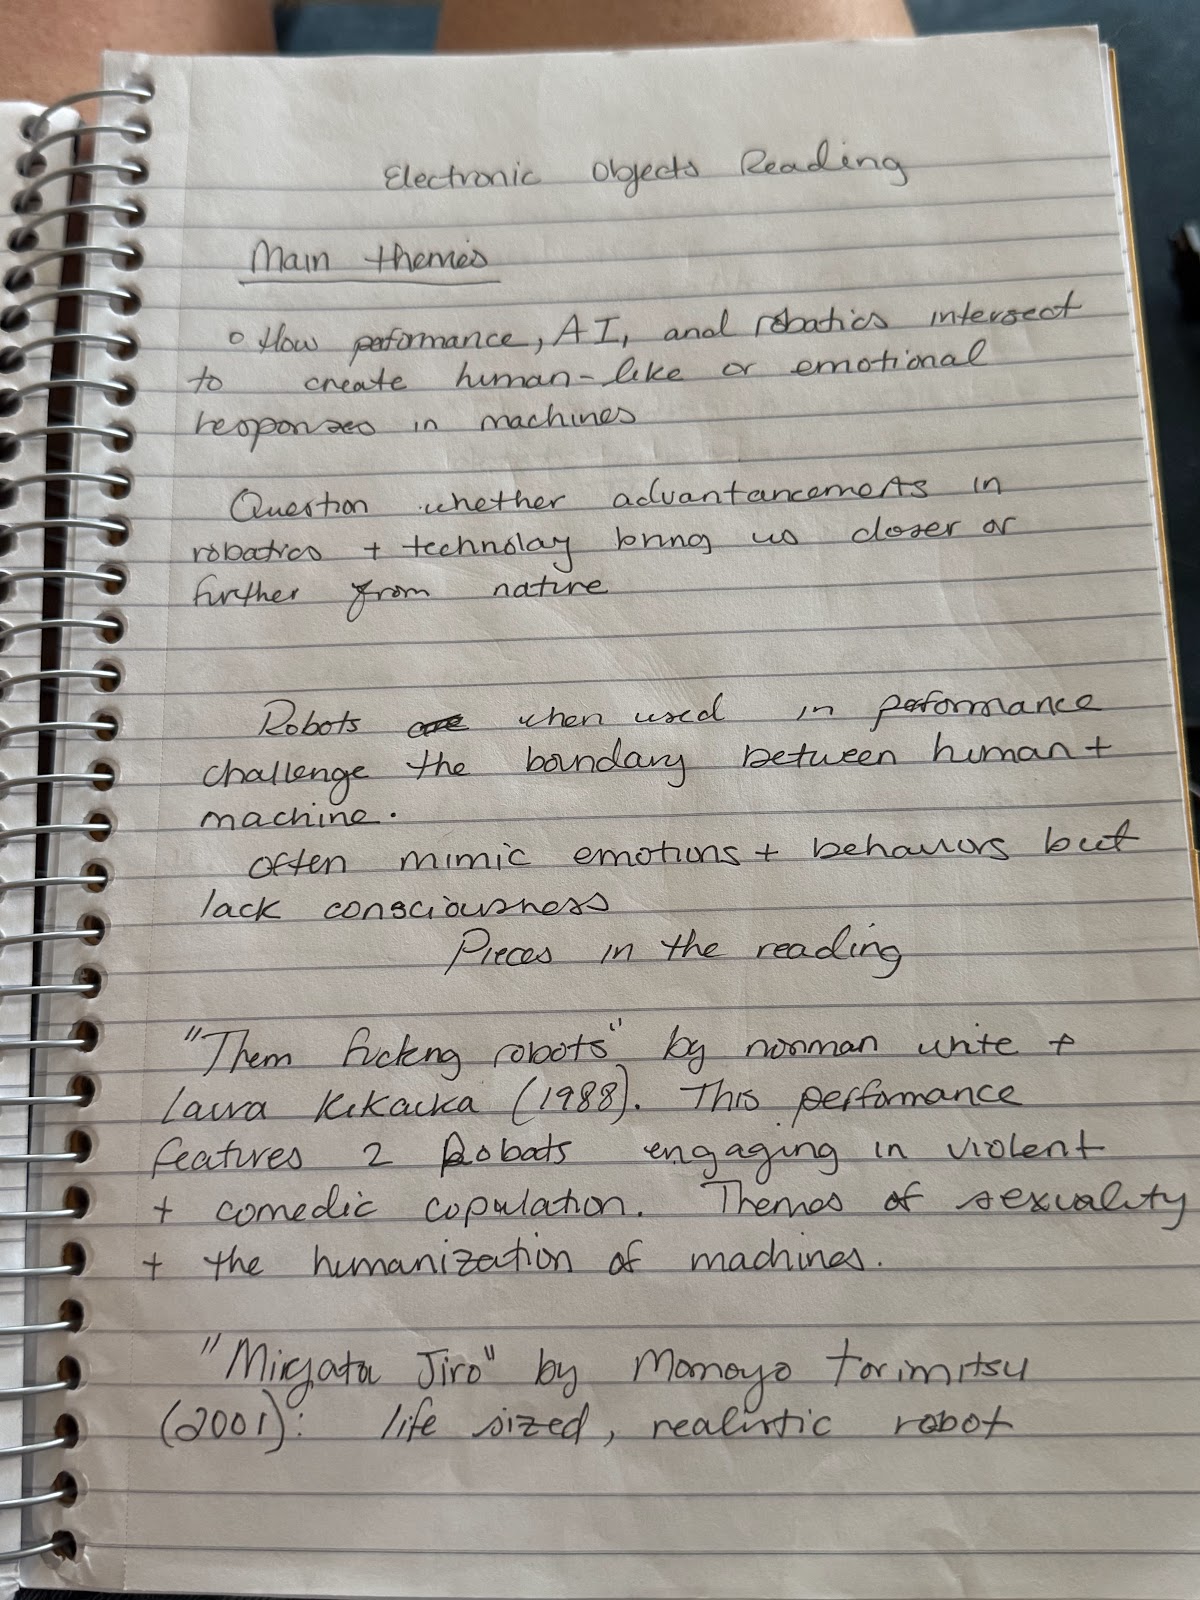 Electronic Objects Reading
Main themes
o How peformance, AI, and robatics intersect
to create human-like or emotional
responses in machines
Question whether advantancements in
robatics + technolay bring us closer or
further from nature
Robots when used in peformance
challenge the boundary between human +
machine.
often mimic emotions + behaviors but
lack consciousness
Pieces in the reading
"Them fucking robots" by norman white +
Laura Kikauka (1988). This performance
features 2 Robats engaging in violent
+ comedic copulation. Themes of sexuality
+ the humanization of machines.
"Miyata Jiro" by Momoyo torimitsu
(2001): life sized, realistic robot